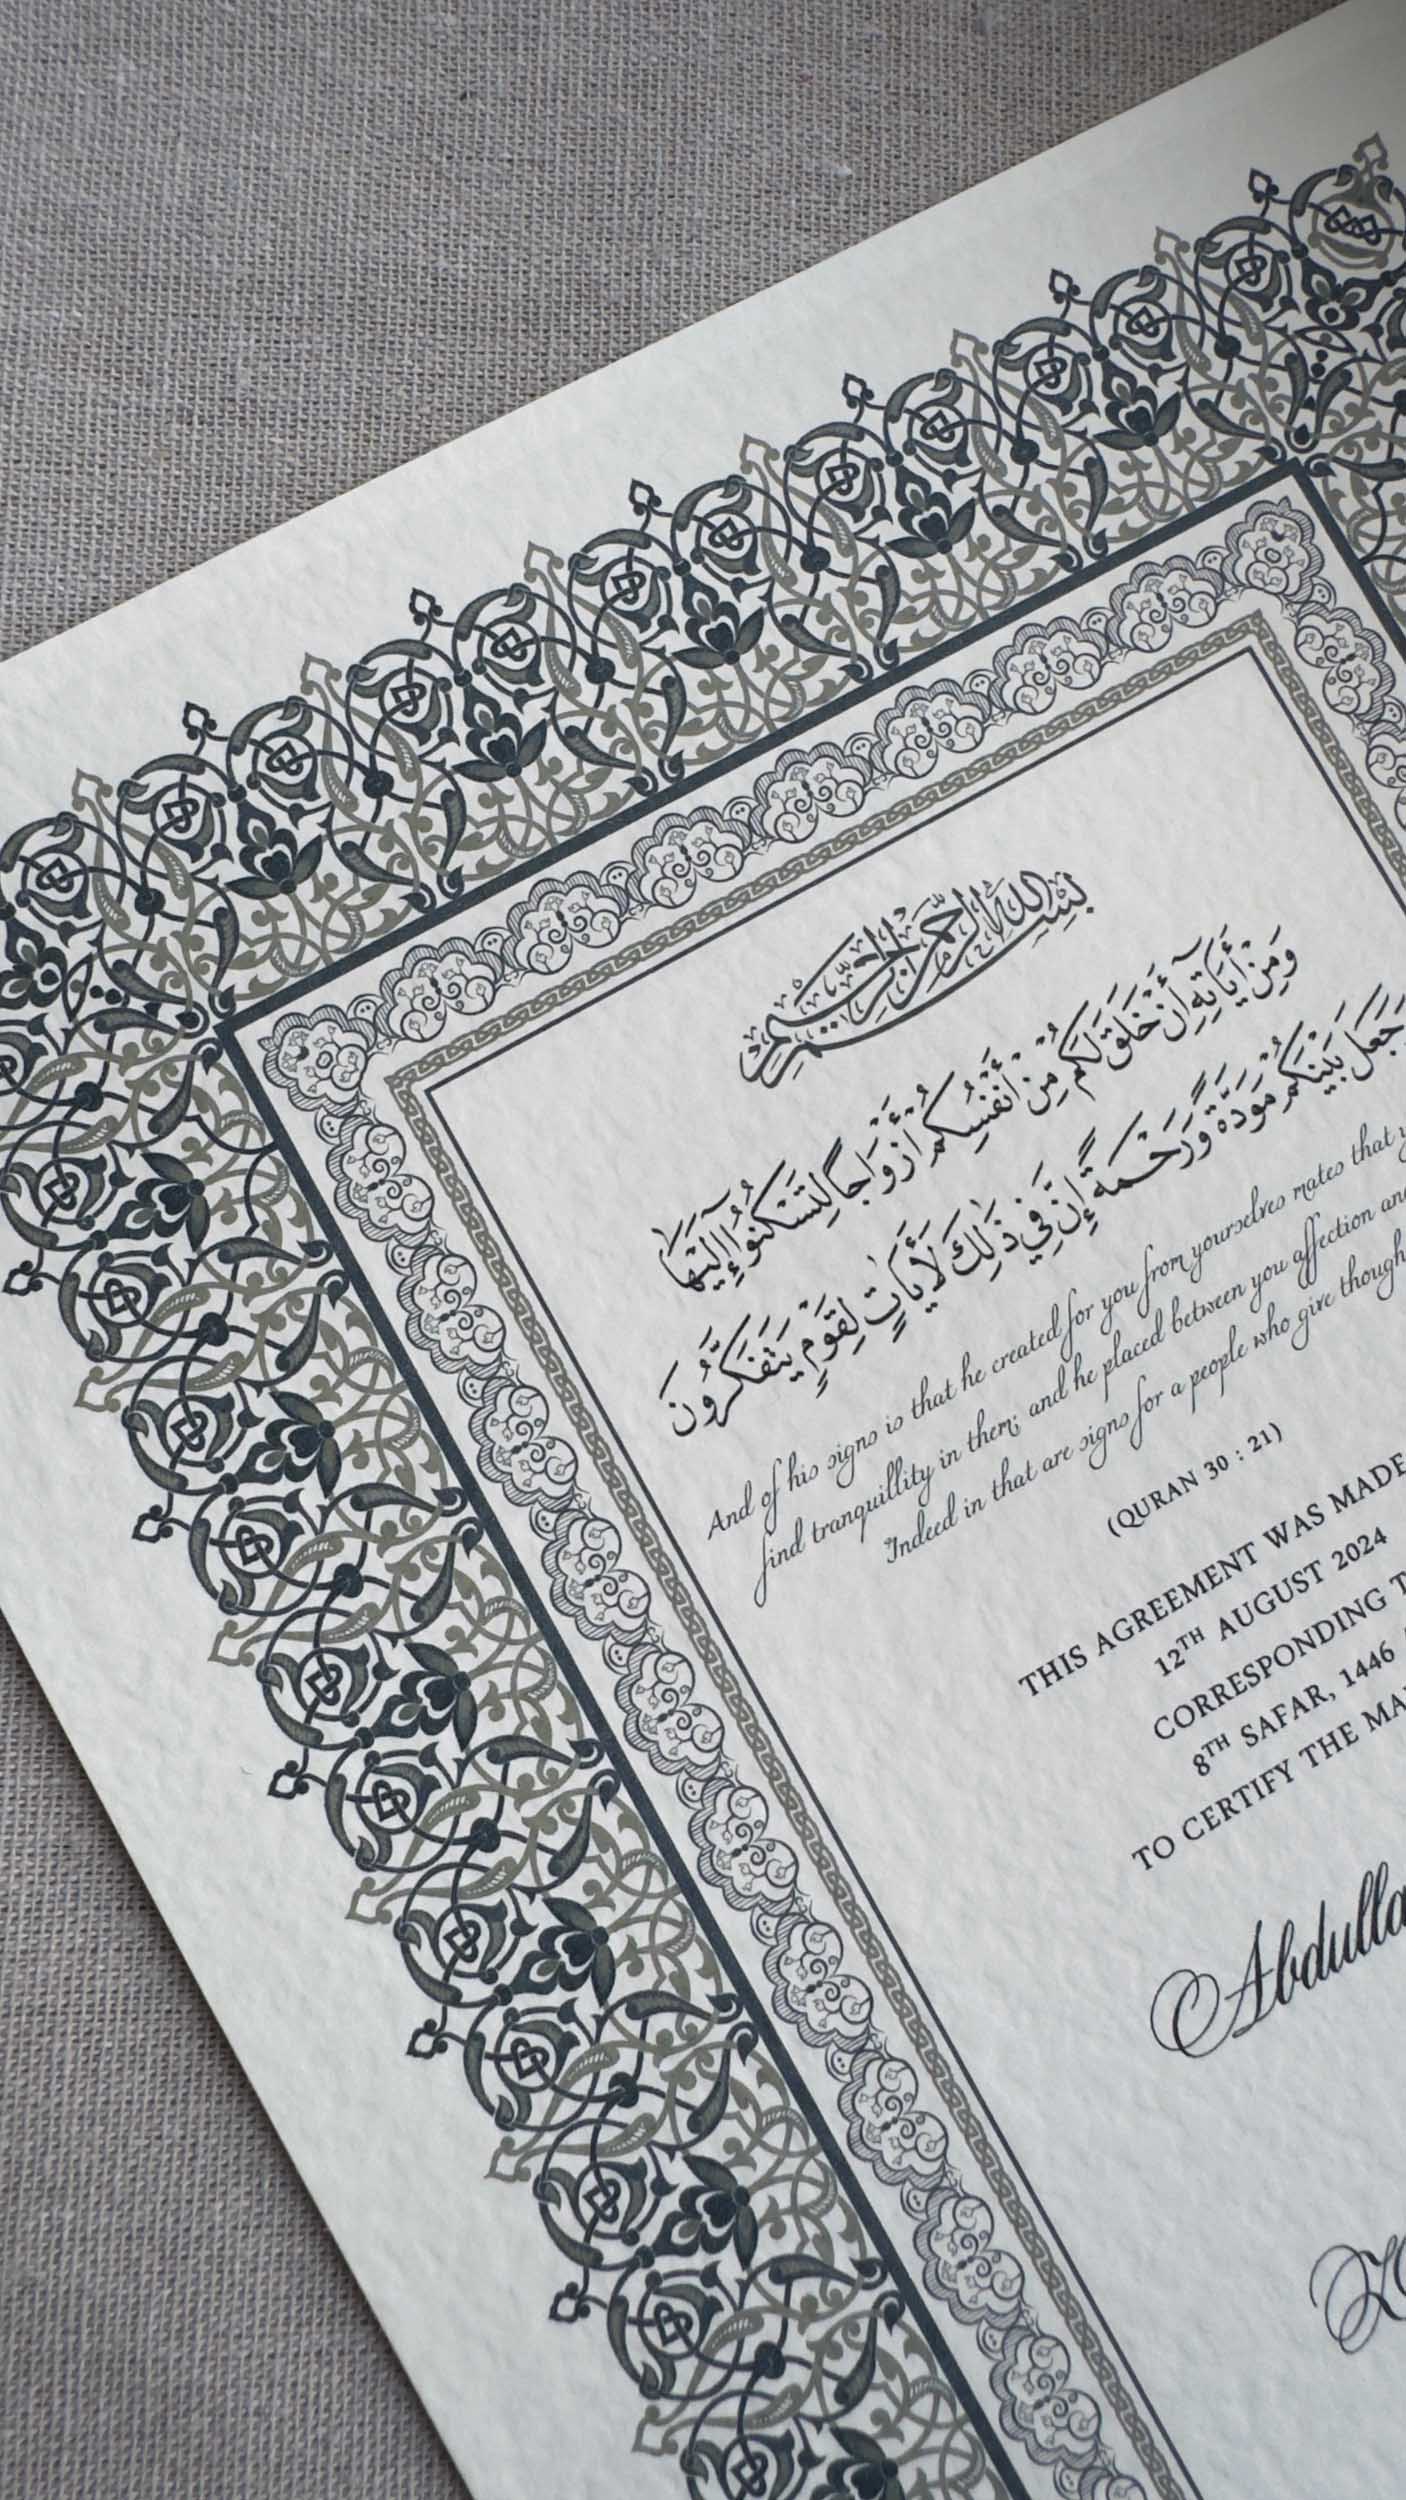 بِسْمِ اللهِ الرَّحْمٰنِ الرَّحِيْمِ
وَمِنْ أٰيَاتِهِٓ أَنْ خَلَقَ لَكُمْ مِنْ أَنْفُسِكُمْ أَزْوَاجًا لِتَسْكُنُوْٓا إِلَيْهَا
وَجَعَلَ بَيْنَكُمْ مَوَدَّةً وَرَحْمَةً إِنَّ فِي ذٰلِكَ لَأٰيَاتٍ لِقَوْمٍ يَتَفَكَّرُونَ
And of his signs is that he created for you from yourselves mates that
find tranquillity in them; and he placed between you affection
Indeed in that are signs for a people who give
(QURAN 30 : 21)
THIS AGREEMENT WAS MADE
12TH AUGUST 2024
CORRESPONDING
8TH SAFAR, 1446
TO CERTIFY THE